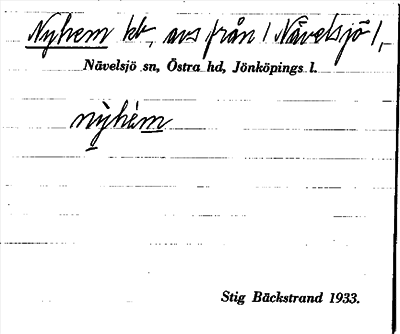 Nyhem kb, avs från 1 Nävelsjö 1,-
Nävelsjö sn, Östra hd, Jönköpings l.
nỳhém
Stig Bäckstrand 1933.